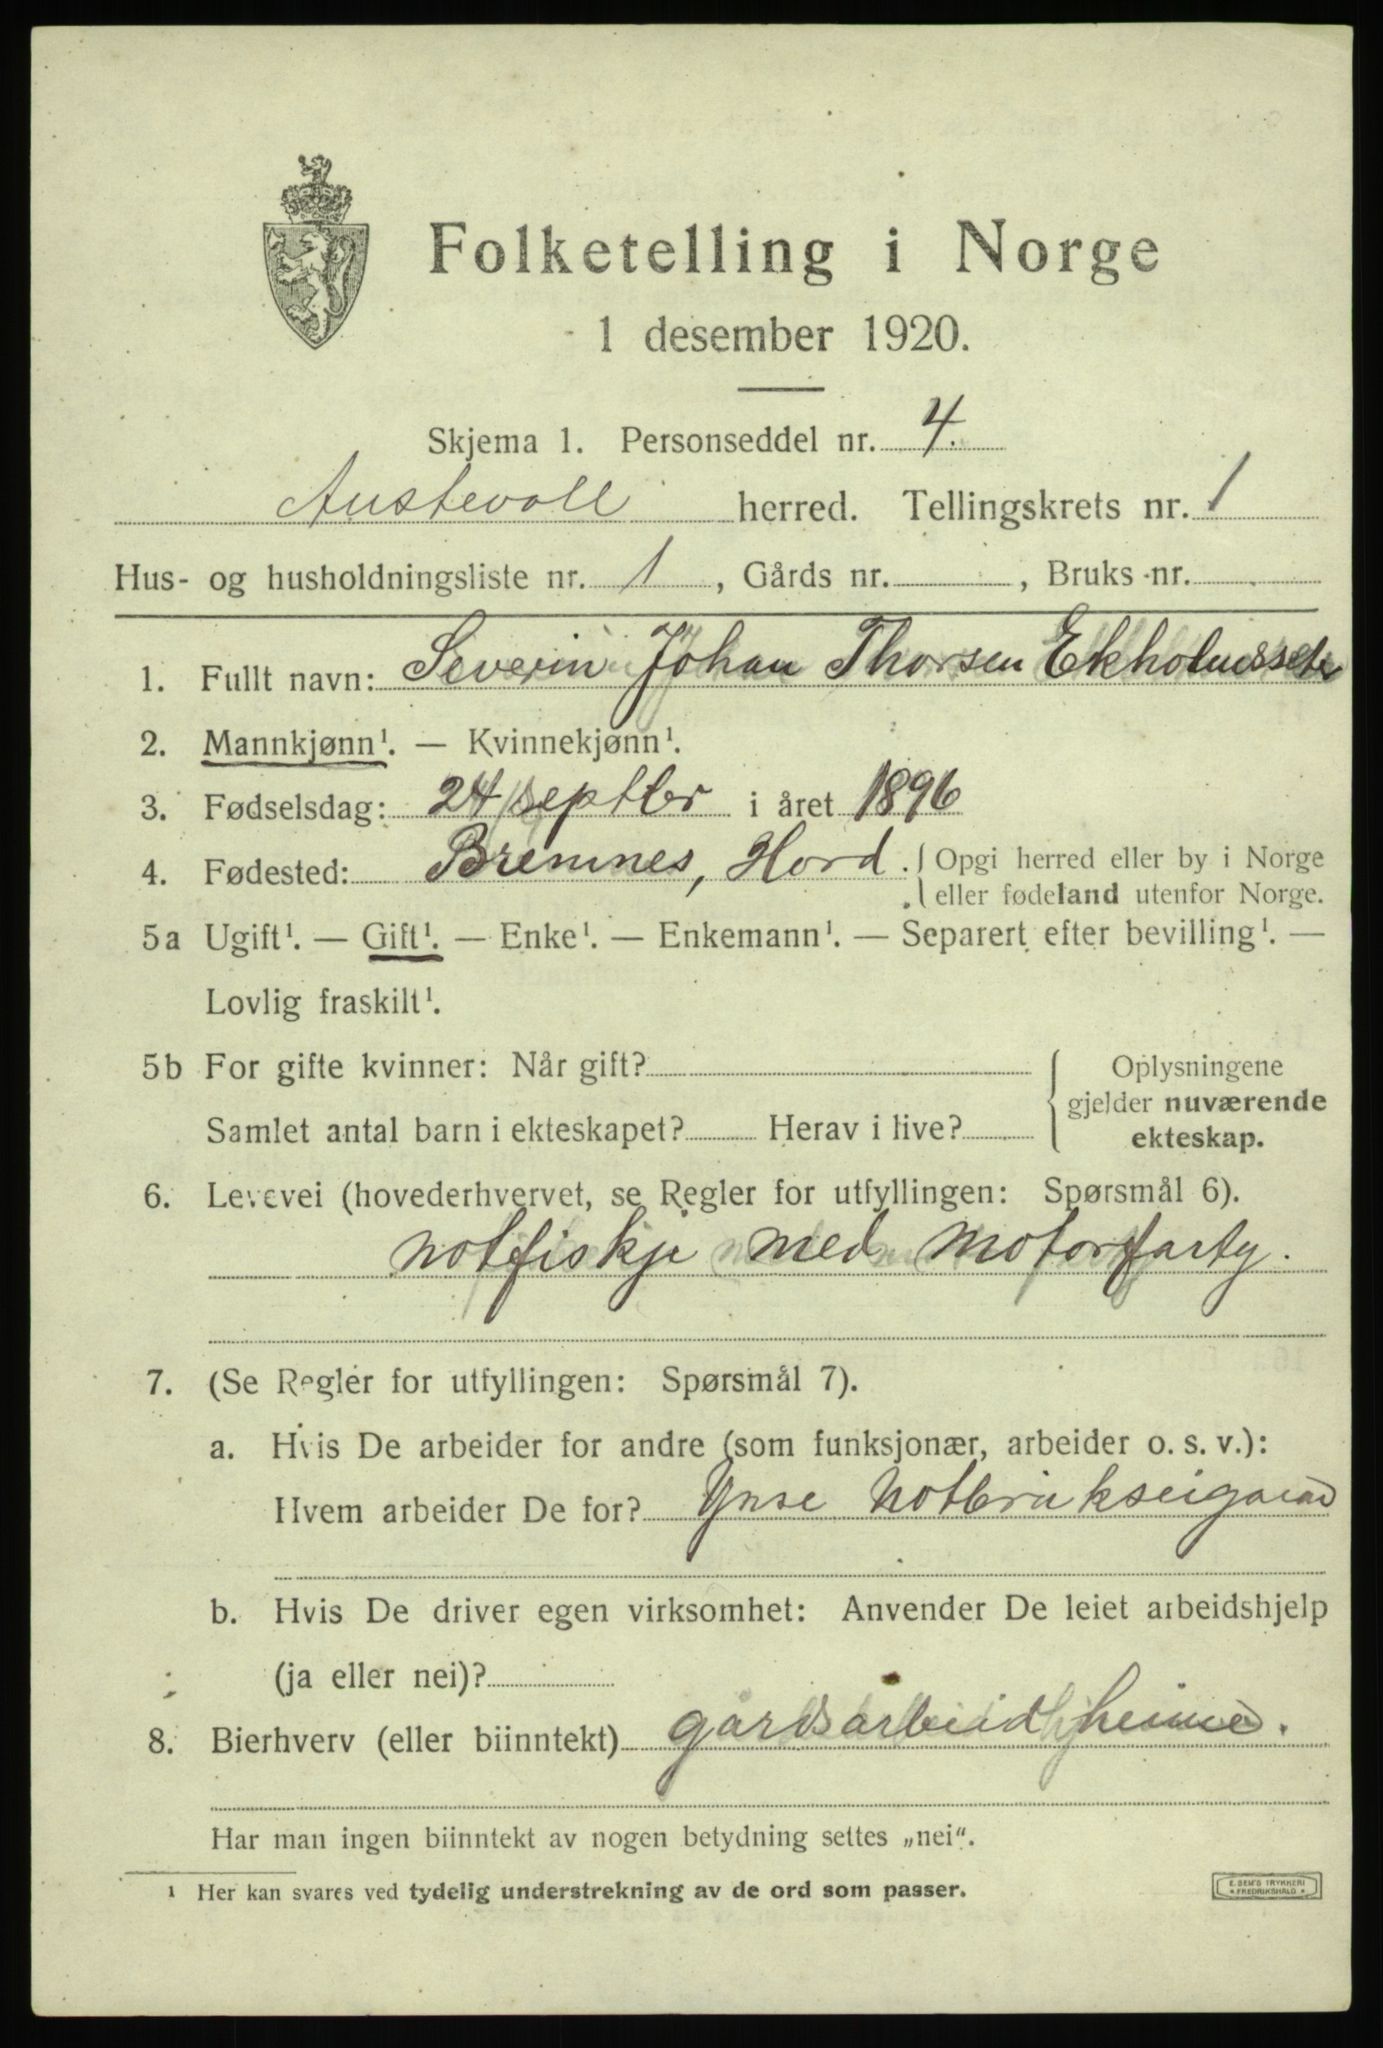 Folketelling i Norge
1 desember 1920.
Skjema 1. Personseddel nr. 4.
Austevoll herred. Tellingskrets nr. 1
Hus- og husholdningsliste nr. 1, Gårds nr. , Bruks nr.
1. Fullt navn: Severin Johan Thorsen Ekholmssete
2. Mannkjønn¹. — Kvinnekjønn¹.
3. Fødselsdag: 24/septbr i året 1896
4. Fødested: Bremnes, Hord. { Opgi herred eller by i Norge
eller fødeland utenfor Norge.
5a Ugift¹. — Gift¹. — Enke¹. — Enkemann¹. — Separert efter bevilling¹. —
Lovlig fraskilt¹.
5b For gifte kvinner: Når gift? { Oplysningene
gjelder nuværende
Samlet antal barn i ekteskapet? Herav i live?
ekteskap.
6. Levevei (hovederhvervet, se Regler for utfyllingen: Spørsmål 6).
notfiskje med motorfarty.
7. (Se Regler for utfyllingen: Spørsmål 7).
a. Hvis De arbeider for andre (som funksjonær, arbeider o. s. v.):
Hvem arbeider De for? Ynse Notbrukseigarar
b. Hvis De driver egen virksomhet: Anvender De leiet arbeidshjelp
(ja eller nei)?
8. Bierhverv (eller biinntekt) gardsarbeid heime.
Har man ingen biinntekt av nogen betydning settes „nei“.
¹ Her kan svares ved tydelig understrekning av de ord som passer.
E. SEM'S TRYKKERI
FREDRIKSHALD